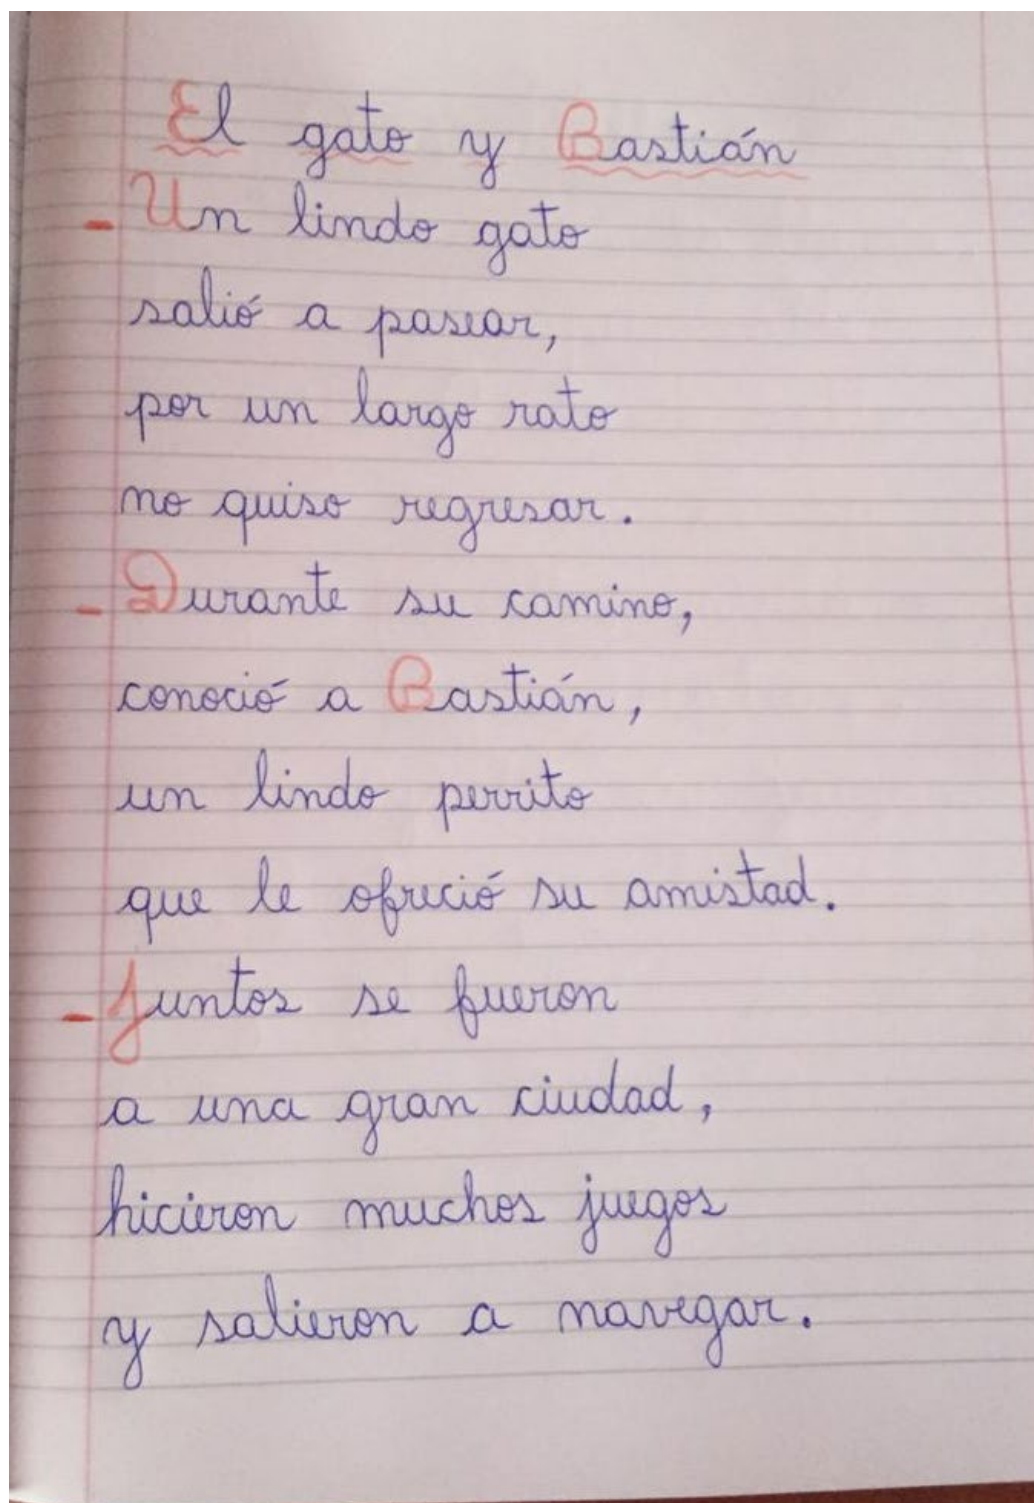 El gato y Bastián
- Un lindo gato
salió a pasear,
por un largo rato
no quiso regresar.
- Durante su camino,
conoció a Bastián,
un lindo perrito
que le ofreció su amistad.
- Juntos se fueron
a una gran ciudad,
hicieron muchos juegos
y salieron a navegar.